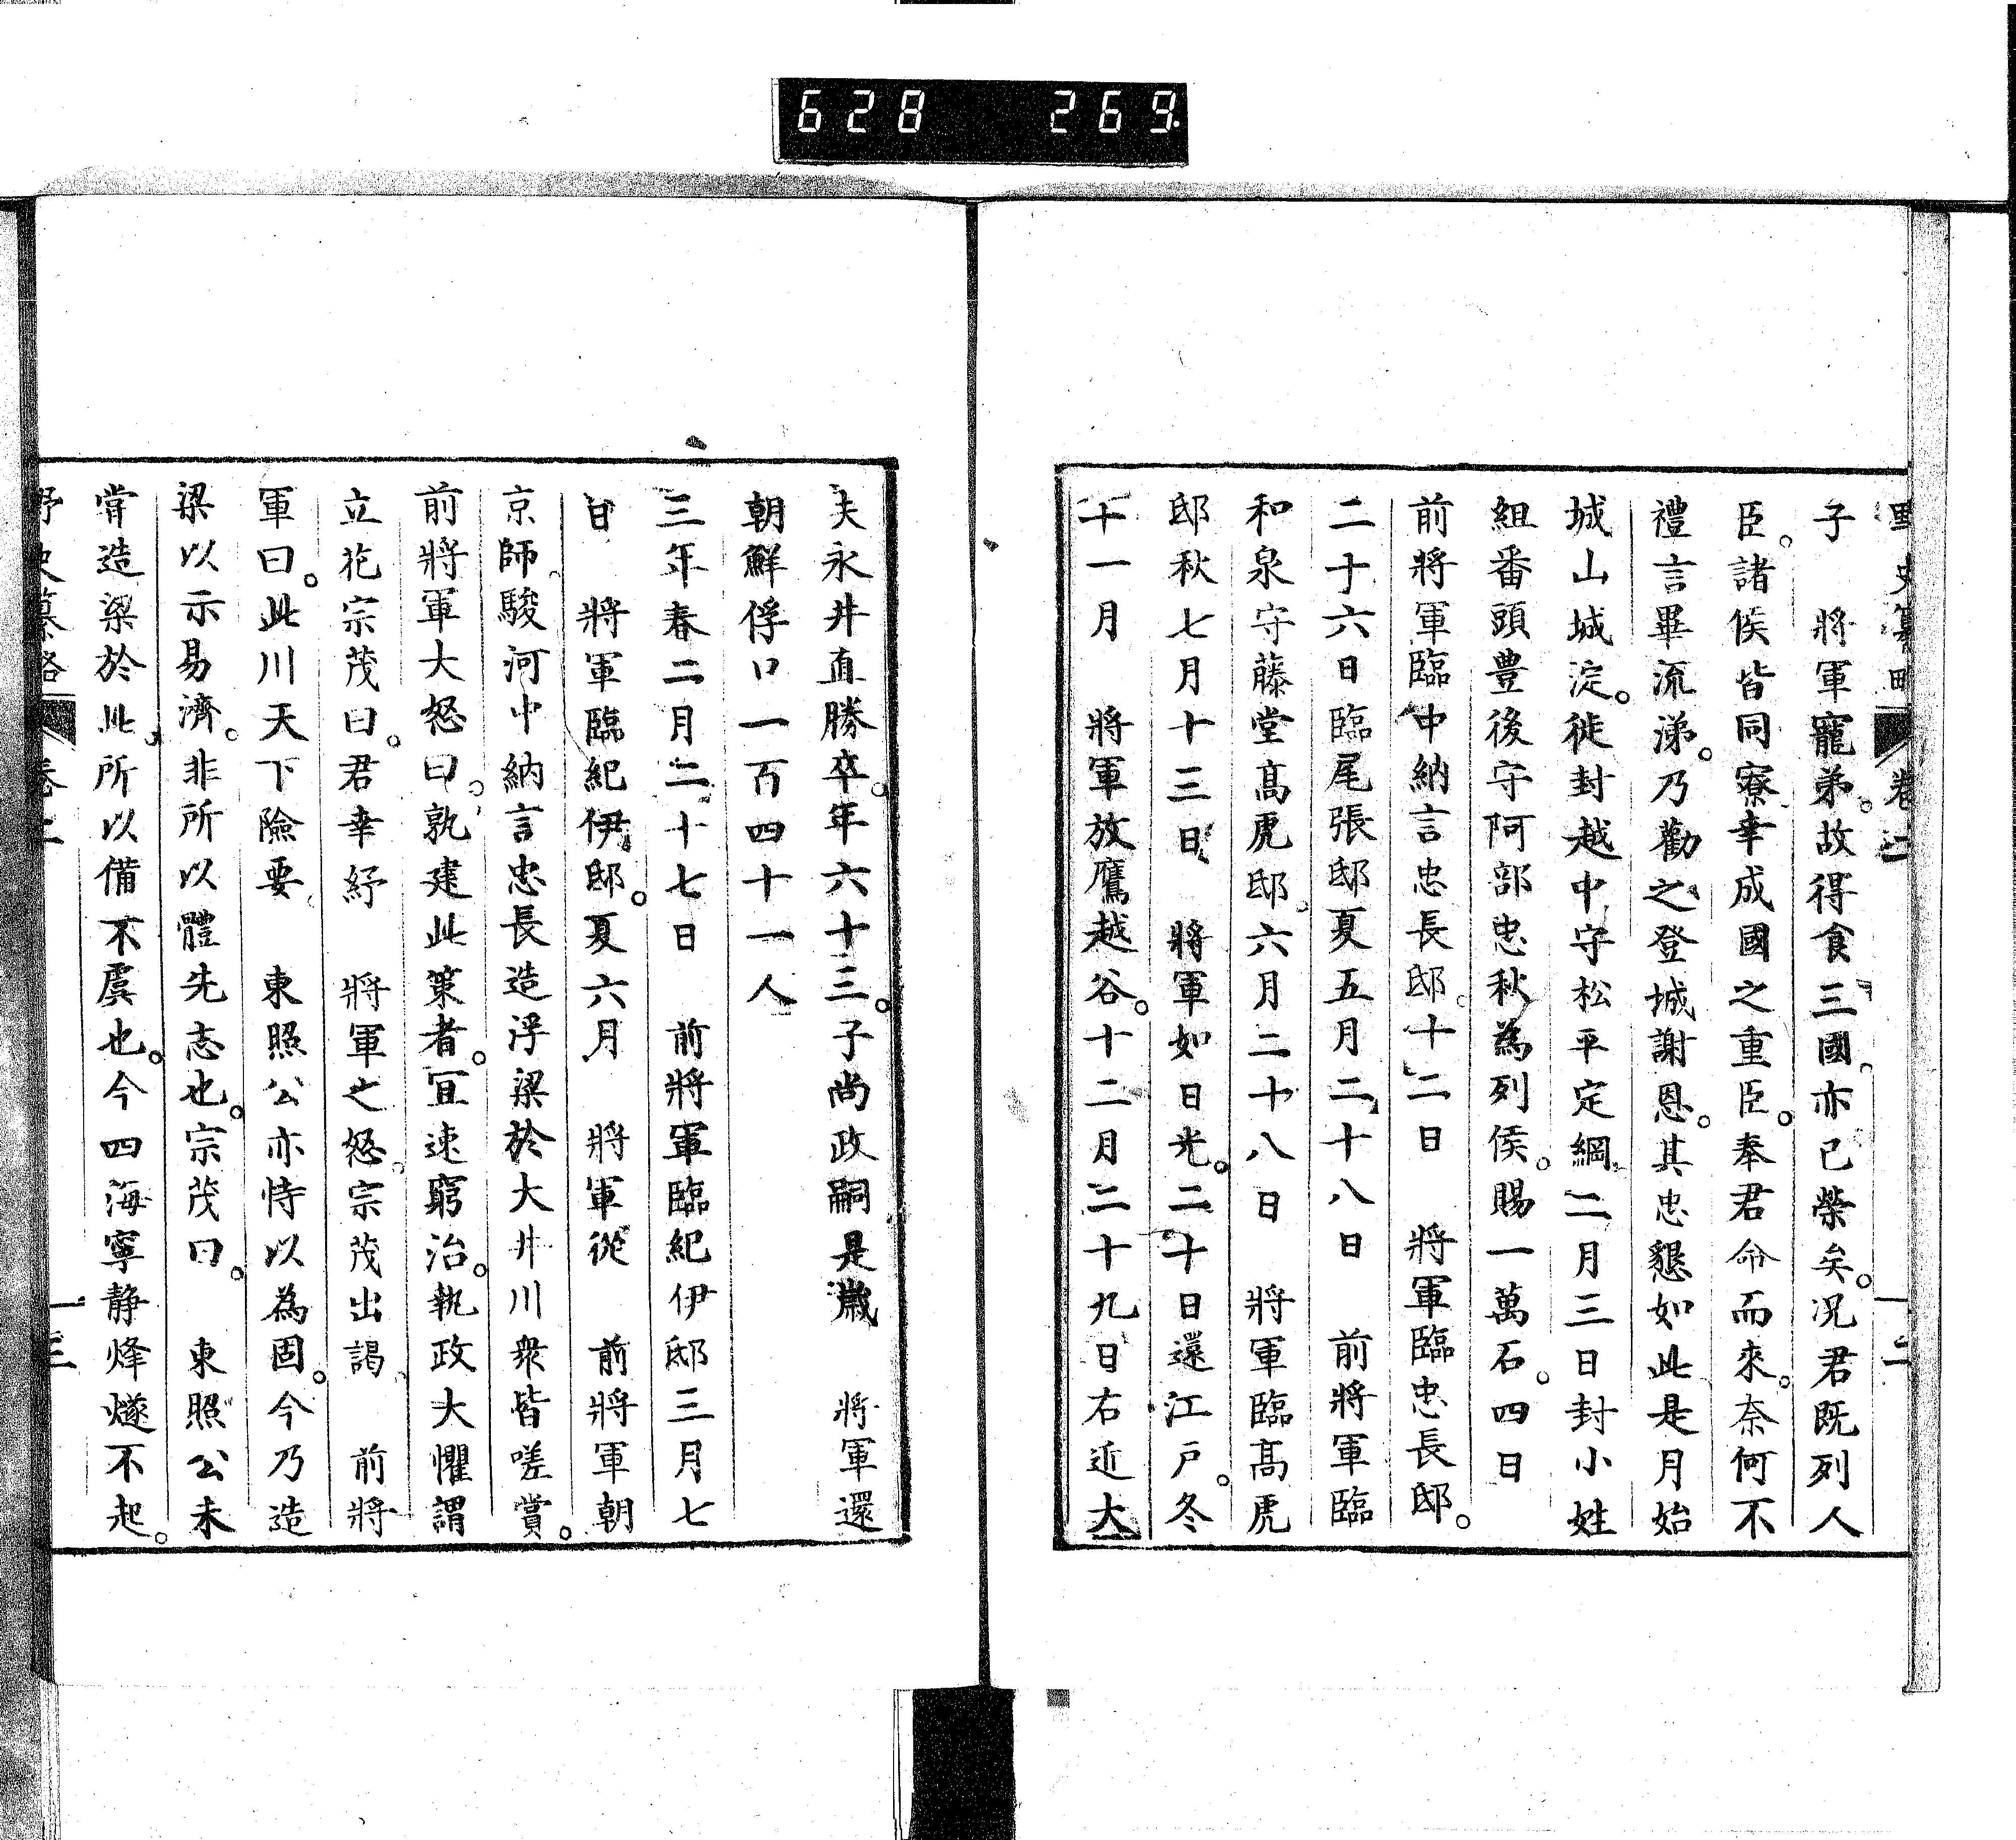 628 269
野史纂略 卷二 十二
子 將軍寵弟。故得食三國。亦已榮矣。况君既列人
臣。諸侯皆同寮。幸成國之重臣。奉君命而來。奈何不
禮言畢流涕。乃勸之登城謝恩。其忠懇如此是月始
城山城淀。徙封越中守松平定綱。二月三日封小姓
組番頭豊後守阿部忠秋為列侯。賜一萬石。四日
前將軍臨中納言忠長邸。十二日 將軍臨忠長邸。
二十六日臨尾張邸夏五月二十八日 前將軍臨
和泉守藤堂高虎邸。六月二十八日 將軍臨高虎
邸秋七月十三日 將軍如日光。二十日還江戸。冬
十一月 將軍放鷹越谷。十二月二十九日右近大
夫永井直勝卒。年六十三。子尚政嗣是歲 將軍還
朝鮮俘口一百四十一人
三年春二月二十七日 前將軍臨紀伊邸三月七
日 將軍臨紀伊邸。夏六月 將軍從 前將軍朝
京師。駿河中納言忠長造浮梁於大井川衆皆嗟賞。
前將軍大怒曰。孰建此策者。宜速窮治。執政大懼謂
立花宗茂曰。君幸紓 將軍之怒。宗茂出謁 前將
軍曰。此川天下險要 東照公亦恃以為固。今乃造
梁以示易濟。非所以體先志也。宗茂曰。 東照公未
甞造梁於此。所以備不虞也。今四海寧静烽燧不起。
野史纂略 卷二 十三